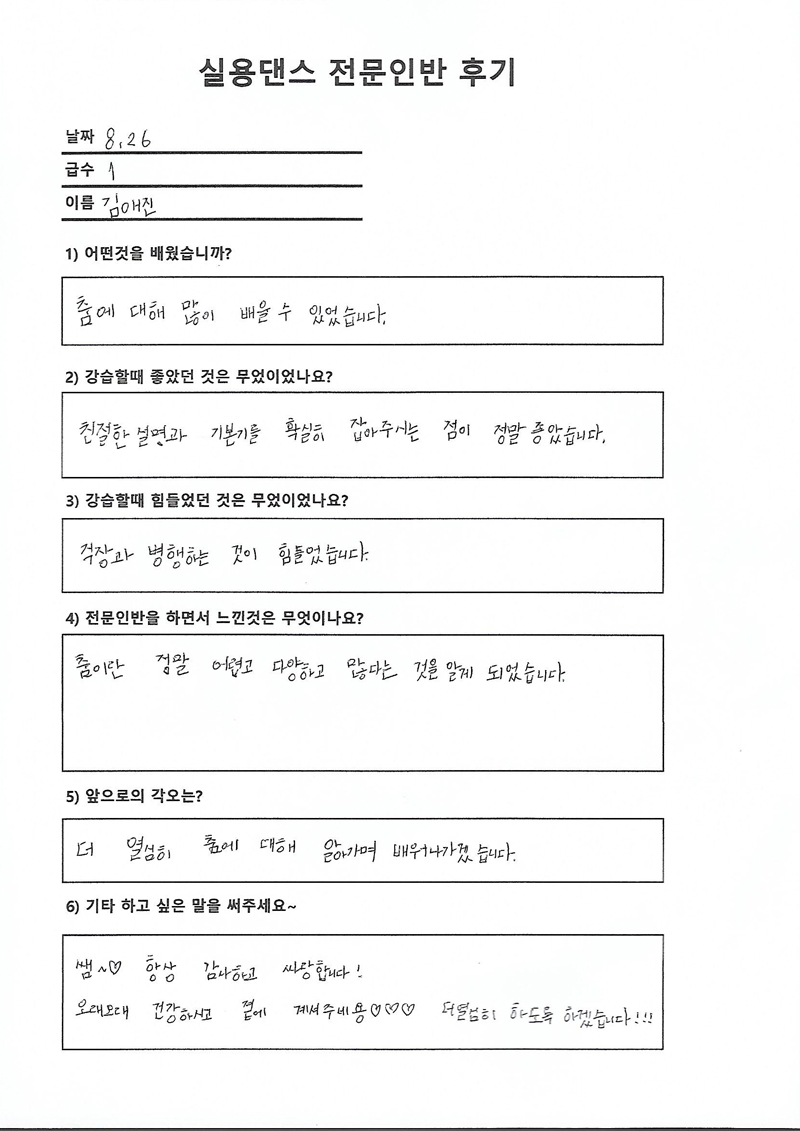 실용댄스 전문인반 후기
날짜 8.26
급수 1
이름 김애진
1) 어떤것을 배웠습니까?
춤에 대해 많이 배울 수 있었습니다.
2) 강습할때 좋았던 것은 무었이었나요?
친절한 설명과 기본기를 확실히 잡아주시는 점이 정말 좋았습니다.
3) 강습할때 힘들었던 것은 무었이었나요?
직장과 병행하는 것이 힘들었습니다.
4) 전문인반을 하면서 느낀것은 무엇이나요?
춤이란 정말 어렵고 다양하고 많다는 것을 알게 되었습니다.
5) 앞으로의 각오는?
더 열심히 춤에 대해 알아가며 배워나가겠습니다.
6) 기타 하고 싶은 말을 써주세요~
쌤~♡ 항상 감사하고 싸랑합니다!
오래오래 건강하시고 곁에 계셔주세용♡♡♡ 더열심히 하도록 하겠습니다!!!